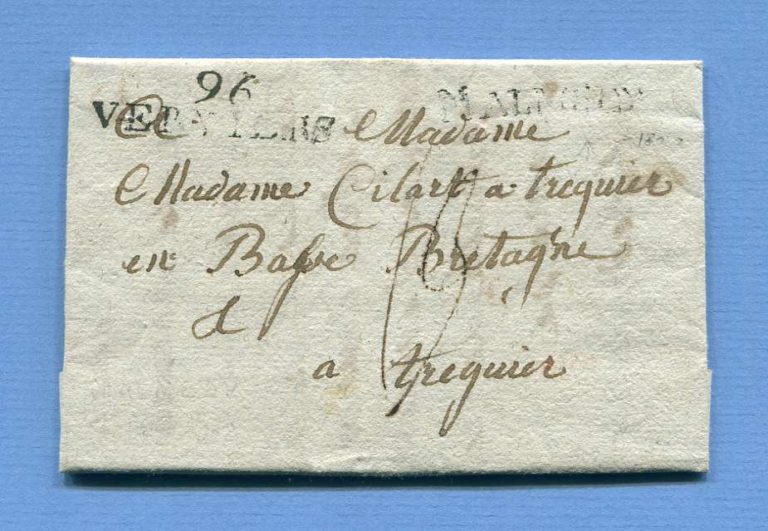 96
VERVIERS MALMEDY
A Madame
Madame Cilart a treguier
en Basse Bretagne
a treguier